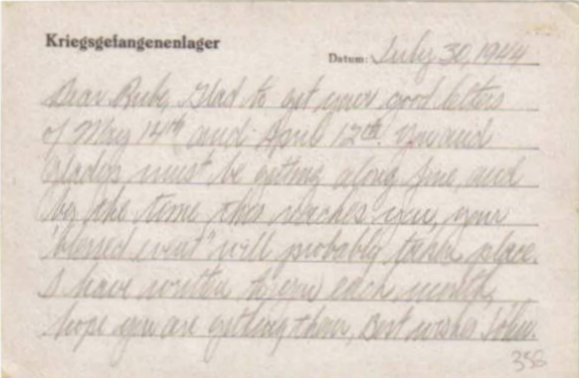 Kriegsgefangenenlager
Datum: July 30, 1944
Dear Rube, Glad to get your good letters
of May 12th and April 12th. You and
Gladys must be getting along fine, and
by the time this reaches you, your
"blessed event" will probably take place.
I have written to you each month,
hope you are getting them, Best wishes John.
336